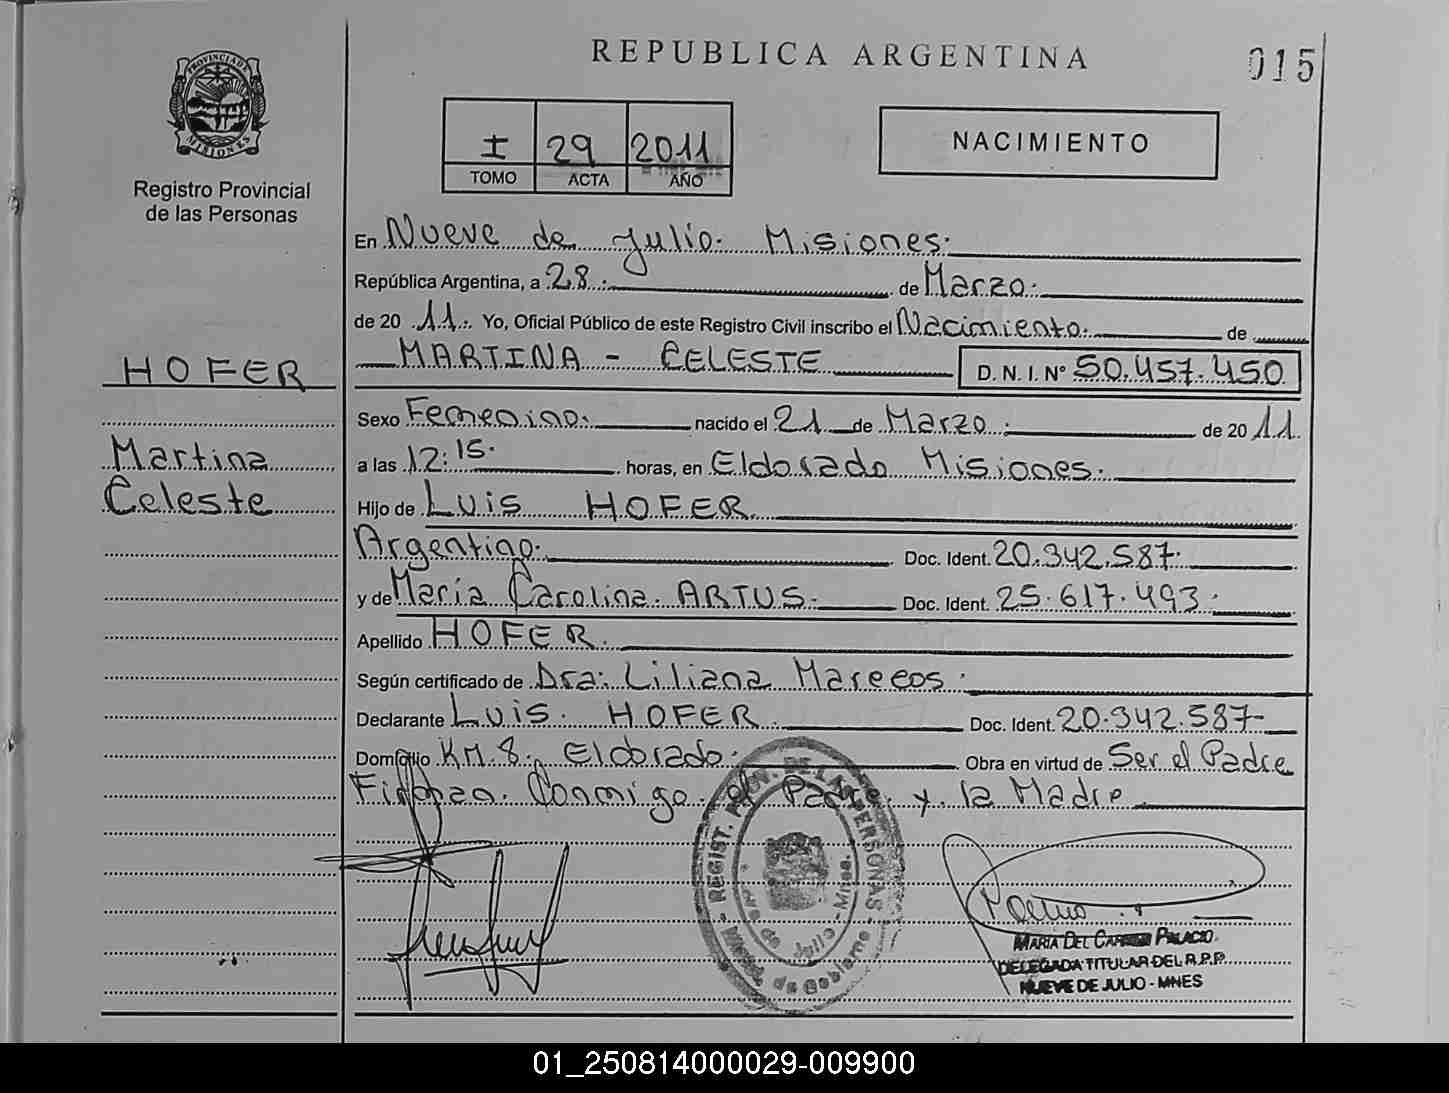 REPUBLICA ARGENTINA
015
PROVINCIA DE
MISIONES
Registro Provincial
de las Personas
I 29 2011
TOMO ACTA AÑO
NACIMIENTO
En Nueve de Julio. Misiones.
República Argentina, a 28. de Marzo.
de 20 11. Yo, Oficial Público de este Registro Civil inscribo el Nacimiento. de
HOFER
MARTINA - CELESTE D. N. I. N° 50.457.450
Sexo Femenino. nacido el 21 de Marzo. de 20 11.
Martina
a las 12:15. horas, en Eldorado Misiones.
Celeste
Hijo de Luis HOFER.
Argentino. Doc. Ident. 20.342.587.
y de María Carolina ARTUS. Doc. Ident. 25.617.493.
Apellido HOFER.
Según certificado de Dra: Liliana Marecos.
Declarante Luis HOFER. Doc. Ident. 20.342.587-
Domicilio KM. 8. Eldorado. Obra en virtud de Ser el Padre
Firman Conmigo el Padre y la Madre
REGIST. PROV. DE LAS PERSONAS
Nueve de Julio - Mnes.
Minist. de Gobierno
MARIA DEL CARMEN PALACIO
DELEGADA TITULAR DEL R.P.P.
NUEVE DE JULIO - MNES
01_250814000029-009900